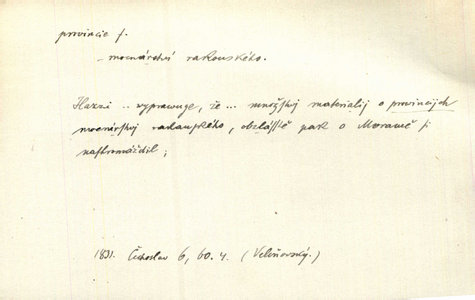 provincie f.
– mocnářství rakouského.
Hazzi .. vyprawuge, že ... množstwj materialij o provincijch
mocnářstwj rakauského, obzlásstě pak o Morawě si
nashromáždil;
1831. Čechoslav 6, 60. 4. (Veliňovský.)